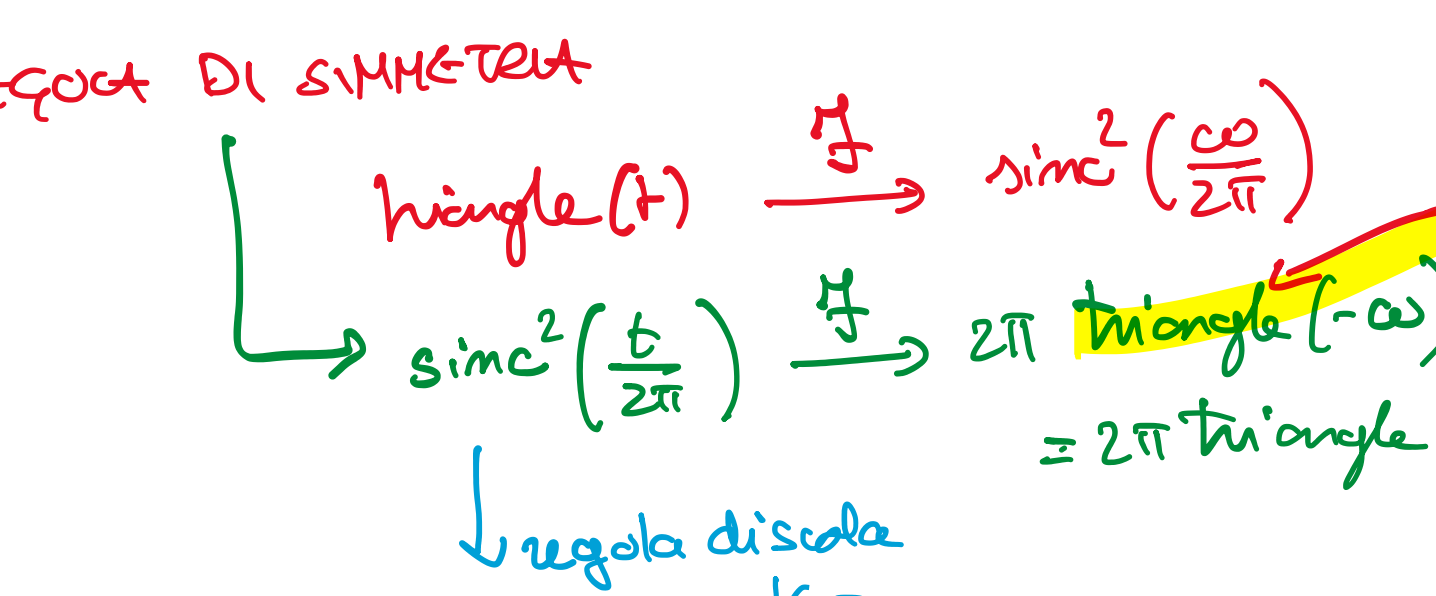 EGOLA DI SIMMETRIA
triangle(t) ℱ→ sinc²(ω/2π)
sinc²(t/2π) ℱ→ 2π triangle(-ω)
= 2π triangle
regola di scala